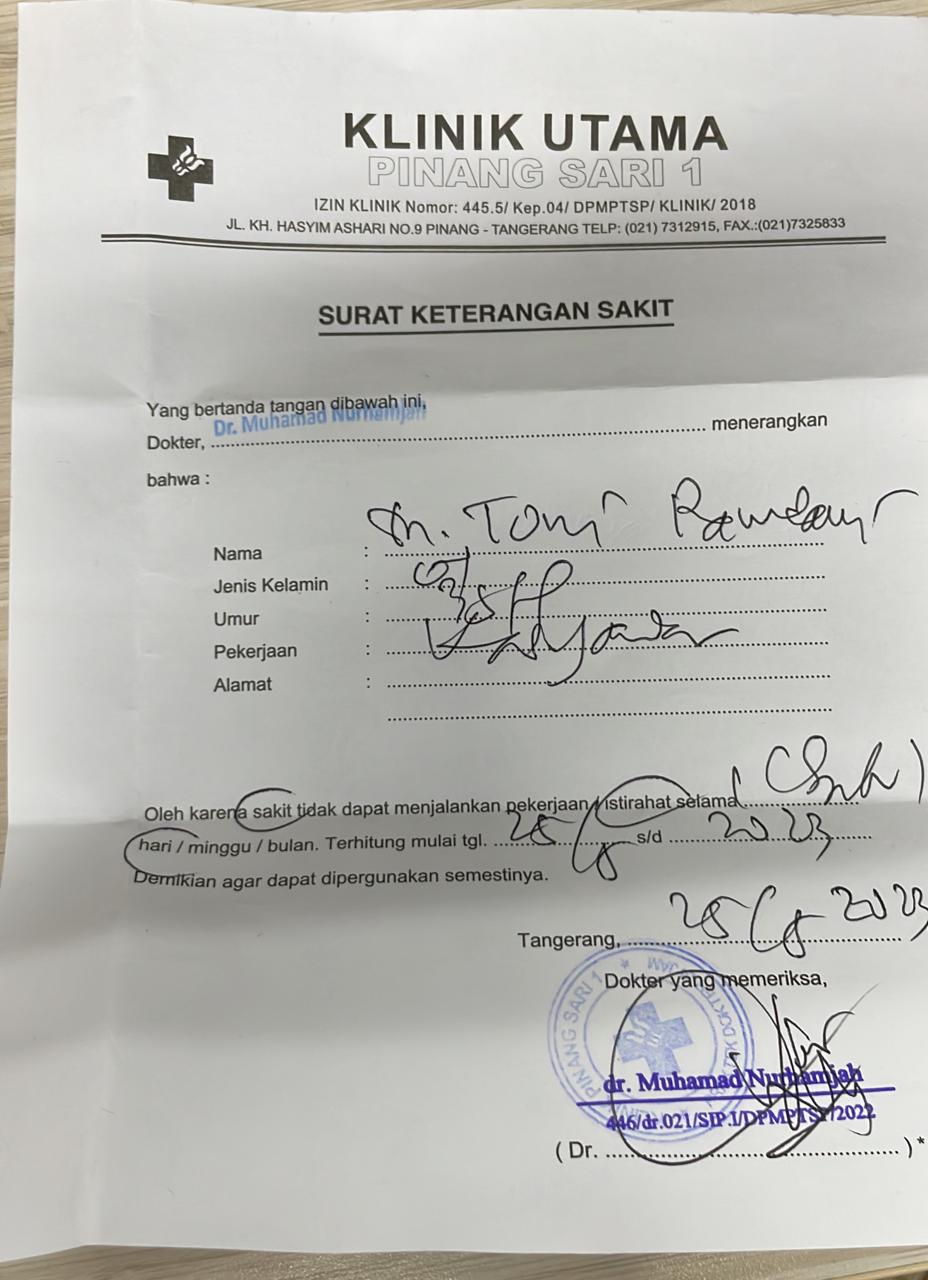 KLINIK UTAMA
PINANG SARI 1
IZIN KLINIK Nomor: 445.5/ Kep.04/ DPMPTSP/ KLINIK/ 2018
JL. KH. HASYIM ASHARI NO.9 PINANG - TANGERANG TELP: (021) 7312915, FAX.:(021)7325833
SURAT KETERANGAN SAKIT
Yang bertanda tangan dibawah ini,
Dokter, Dr. Muhamad Nurhamjah menerangkan
bahwa :
Nama : Tn. Toni Ramdani
Jenis Kelamin :
Umur :
Pekerjaan : Karyawan
Alamat :
Oleh karena sakit tidak dapat menjalankan pekerjaan / istirahat selama
hari / minggu / bulan. Terhitung mulai tgl. s/d 2023
Demikian agar dapat dipergunakan semestinya.
Tangerang, 2023
Dokter yang memeriksa,
PINANG SARI 1
dr. Muhamad Nurhamjah
446/dr.021/SIP.I/DPMPTSP/2022
( Dr. ) *